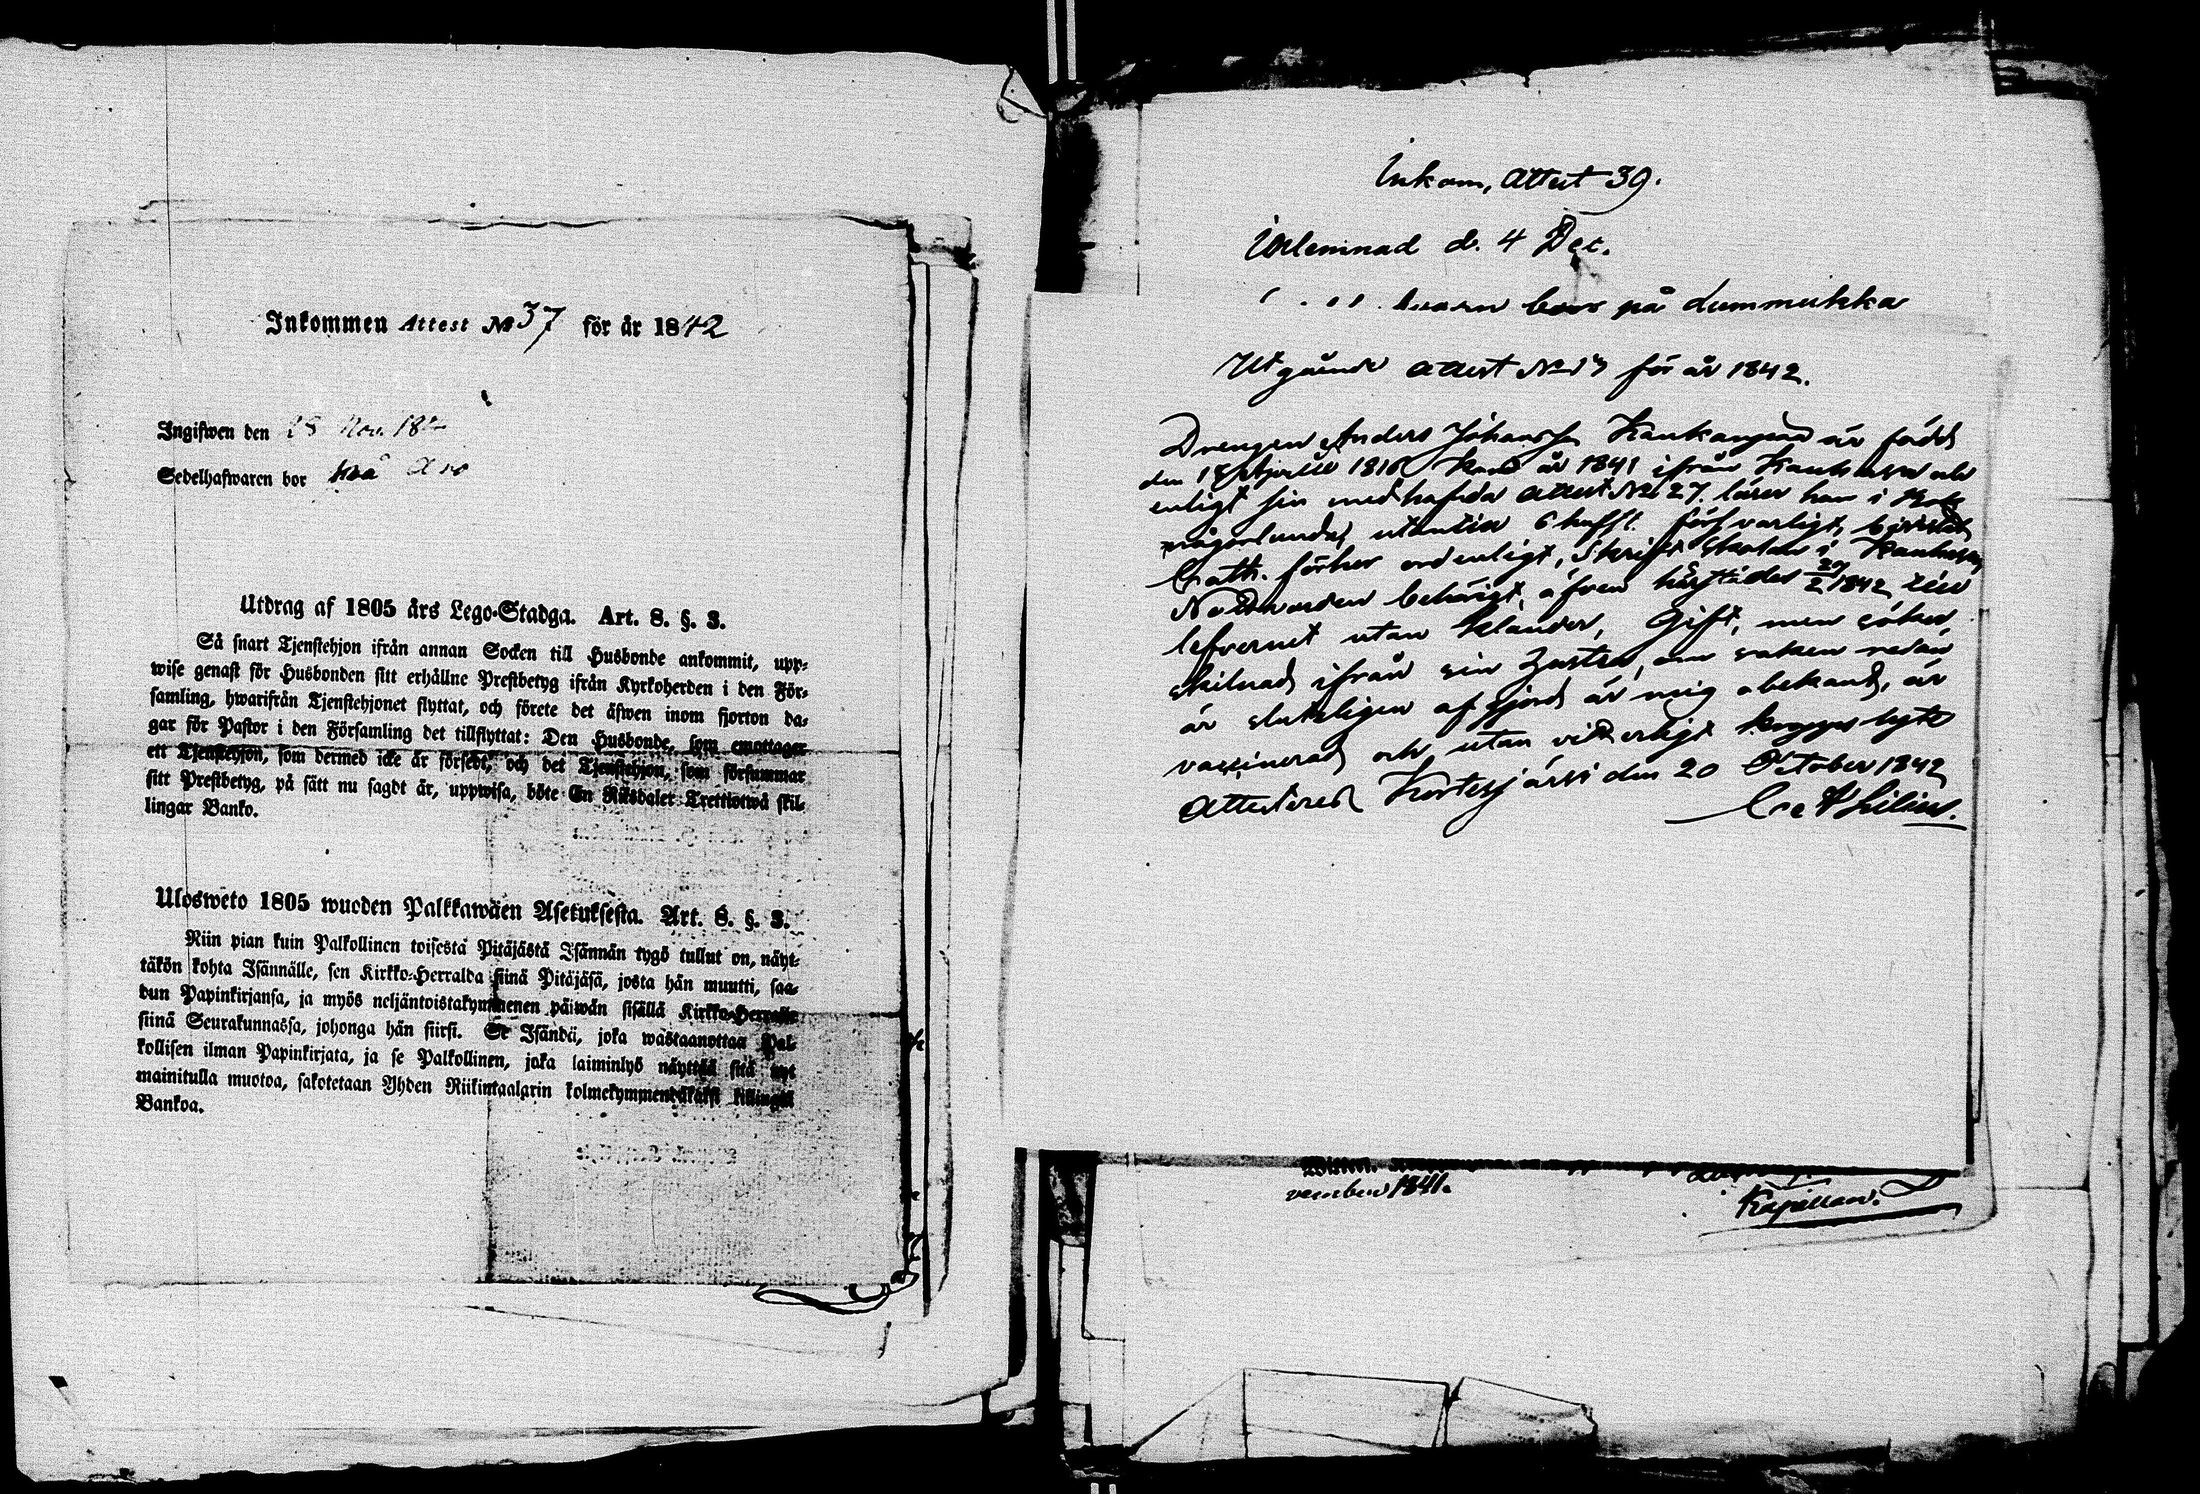 Inkommen Attest № 37 för år 1842
Ingifwen den 28 Nov. 184
Sedelhafwaren bor
Utdrag af 1805 års Lego-Stadga. Art. 8. §. 3.
Så snart Tjenstehjon ifrån annan Socken till Husbonde ankommit, upp-
wise genast för Husbonden sitt erhållne Prestbetyg ifrån Kyrkoherden i den För-
samling, hwarifrån Tjenstehjonet flyttat, och förete det äfwen inom fjorton da-
gar för Pastor i den Församling det tillflyttat: Den Husbonde, som emottager
ett Tjenstehjon, som dermed icke är försedt, och det Tjenstehjon, som försummar
sitt Prestbetyg, på sätt nu sagdt är, uppwisa, böte En Riksdaler Trettiotwå skil-
lingar Banko.
Ulosweto 1805 wuoden Palkkawäen Asetuksesta. Art. 8. §. 3.
Niin pian kuin Palkollinen toisesta Pitäjästä Isännän tygö tullut on, näyt-
täkön kohta Isännälle, sen Kirkko-Herralda siinä Pitäjäsä, josta hän muutti, saa-
dun Papinkirjansa, ja myös neljäntoistakymmenen päiwän sisällä Kirkko-Herralle
siinä Seurakunnassa, johonga hän siirsi. Se Isändä, joka wastaanottaa Pal-
kollisen ilman Papinkirjata, ja se Palkollinen, joka laiminlyö näyttää sitä nyt
mainitulla muotoa, sakotetaan Yhden Riikintaalarin kolmekymmendäkaksi killingiä
Bankoa.
Inkom, Attest 39.
Inlemnad d. 4 Dec.
bor på Lummukka
Utgående Attest № 17 för år 1842.
Drengen Anders Johansson Kaukangen är född
den 18 Aprill 1816 kom år 1841 ifrån Kauhava och
enligt sin medhafda Attest № 27. läser han i Bok
någorlunda, utantill försvarligt,
Cath. förhör ordenligt, Skrift skolan i Kauhava
Nattvarden behörigt, äfven här 27/2 1842 till
lefvernet utan klander, Gift, men söker
skilnad ifrån sin hustru, om saken redan
är sluteligen afgjord är mig obekand, är
vaccinerad och utan vitterligt kropps lyte
Attesteras Kortesjärvi den 20 October 1842
vember 1841.
Kapellan.